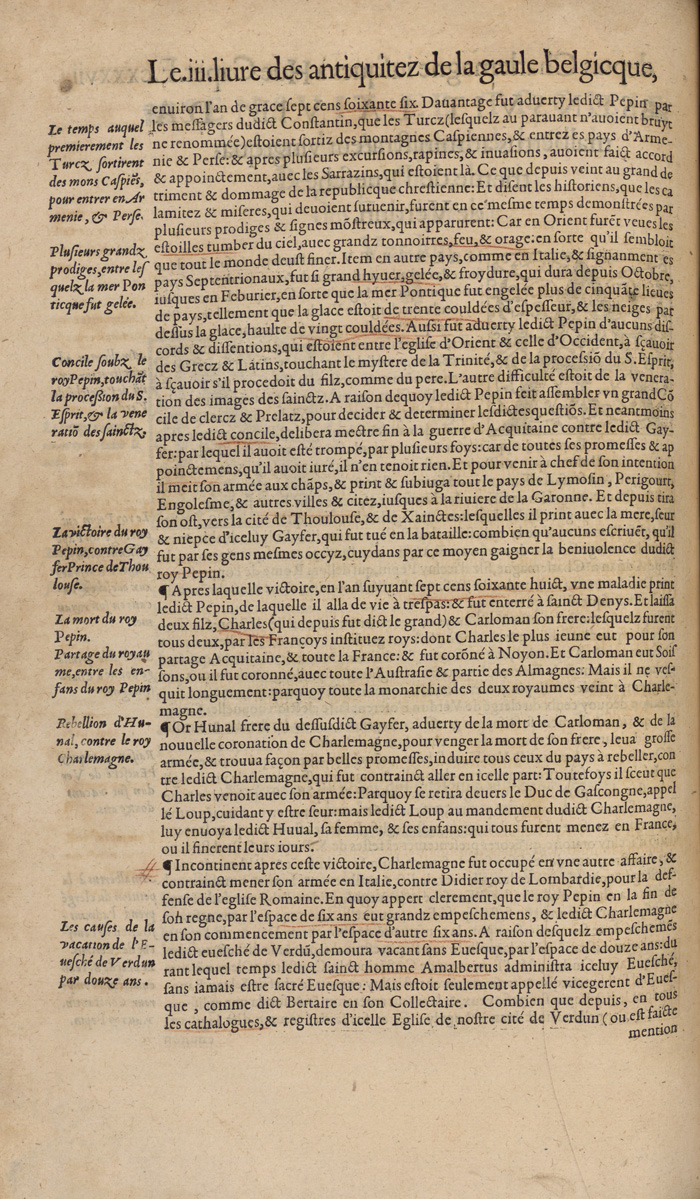 Le.iii.liure des antiquitez de la gaule belgicque,
enuiron l'an de grace sept cens soixante six. Dauantage fut aduerty ledict Pepin par
les messagers dudict Constantin, que les Turcz (lesquelz au parauant n'auoient bruyt
ne renommée) estoient sortiz des montagnes Caspiennes, & entrez es pays d'Arme-
nie & Perse: & apres plusieurs excursions, rapines, & inuasions, auoient faict accord
& appoinctement, auec les Sarrazins, qui estoient là. Ce que depuis veint au grand de
triment & dommage de la republicque chrestienne: Et disent les historiens, que les ca
lamitez & miseres, qui deuoient suruenir, furent en ce mesme temps demonstrées par
plusieurs prodiges & signes mõstreux, qui apparurent: Car en Orient furẽt veues les
estoilles tumber du ciel, auec grandz tonnoirres, feu, & orage: en sorte qu'il sembloit
que tout le monde deust finer. Item en autre pays, comme en Italie, & signanment es
pays Septentrionaux, fut si grand hyuer, gelée, & froydure, qui dura depuis Octobre,
iusques en Feburier, en sorte que la mer Pontique fut engelée plus de cinquãte lieues
de pays, tellement que la glace estoit de trente couldées d'espesseur, & les neiges par
dessus la glace, haulte de vingt couldées. Aussi fut aduerty ledict Pepin d'aucuns dis-
cords & dissentions, qui estoient entre l'eglise d'Orient & celle d'Occident, à sçauoir
des Grecz & Latins, touchant le mystere de la Trinité, & de la processiõ du S. Esprit,
à sçauoir s'il procedoit du filz, comme du pere. L'autre difficulté estoit de la venera-
tion des images des sainctz. A raison dequoy ledict Pepin feit assembler vn grand Cõ
cile de clercz & Prelatz, pour decider & determiner lesdictes questiõs. Et neantmoins
apres ledict concile, delibera mectre fin à la guerre d'Acquitaine contre ledict Gay-
fer: par lequel il auoit esté trompé, par plusieurs foys: car de toutes ses promesses & ap
poinctemens, qu'il auoit iuré, il n'en tenoit rien. Et pour venir à chef de son intention
il meit son armée aux chãps, & print & subiuga tout le pays de Lymosin, Perigourt,
Engolesme, & autres villes & citez, iusques à la riuiere de la Garonne. Et depuis tira
son ost, vers la cité de Thoulouse, & de Xainctes: lesquelles il print auec la mere, seur
& niepce d'iceluy Gayfer, qui fut tué en la bataille: combien qu'aucuns escriuẽt, qu'il
fut par ses gens mesmes occyz, cuydans par ce moyen gaigner la beniuolence dudict
roy Pepin.
¶ Apres laquelle victoire, en l'an suyuant sept cens soixante huict, vne maladie print
ledict Pepin, de laquelle il alla de vie à trespas: & fut enterré à sainct Denys. Et laissa
deux filz, Charles (qui depuis fut dict le grand) & Carloman son frere: lesquelz furent
tous deux, par les Françoys instituez roys: dont Charles le plus ieune eut pour son
partage Acquitaine, & toute la France: & fut corõné à Noyon. Et Carloman eut Soif
sons, ou il fut coronné, auec toute l'Austrasie & partie des Almagnes: Mais il ne ves-
quit longuement: parquoy toute la monarchie des deux royaumes veint à Charle-
magne.
¶ Or Hunal frere du dessusdict Gayfer, aduerty de la mort de Carloman, & de la
nouuelle coronation de Charlemagne, pour venger la mort de son frere, leua grosse
armée, & trouua façon par belles promesses, induire tous ceux du pays à rebeller, con
tre ledict Charlemagne, qui fut contrainct aller en icelle part: Toutefoys il sceut que
Charles venoit auec son armée: Parquoy se retira deuers le Duc de Gascongne, appel
lé Loup, cuidant y estre seur: mais ledict Loup au mandement dudict Charlemagne,
luy enuoya ledict Huual, sa femme, & ses enfans: qui tous furent menez en France,
ou il finerent leurs iours.
¶ Incontinent apres ceste victoire, Charlemagne fut occupé en vne autre affaire, &
contrainct mener son armée en Italie, contre Didier roy de Lombardie, pour la def-
fense de l'eglise Romaine. En quoy appert clerement, que le roy Pepin en la fin de
son regne, par l'espace de six ans eut grandz empeschemens, & ledict Charlemagne
en son commencement par l'espace d'autre six ans. A raison desquelz empeschemẽs
ledict euesché de Verdũ, demoura vacant sans Euesque, par l'espace de douze ans: du
rant lequel temps ledict sainct homme Amalbertus administra iceluy Euesché,
sans iamais estre sacré Euesque: Mais estoit seulement appellé vicegerent d'Eues-
que, comme dict Bertaire en son Collectaire. Combien que depuis, en tous
les cathalogues, & registres d'icelle Eglise de nostre cité de Verdun (ou est faicte
mention
Le temps auquel
premierement les
Turcz sortirent
des mons Caspiẽs,
pour entrer en Ar
menie, & Perse.
Plusieurs grandz
prodiges, entre lef
quelz la mer Pon
ticque fut gelée.
Concile soubz le
roy Pepin, touchãt
la procession du S.
Esprit, & la vene
ratiõ des sainctz.
La victoire du roy
Pepin, contre Gay
fer Prince de Thou
louse.
La mort du roy
Pepin.
Partage du royau
me, entre les en-
fans du roy Pepin
Rebellion d'Hu-
nal, contre le roy
Charlemagne.
Les causes de la
vacation de l'E-
uesché de Verdun
par douze ans.